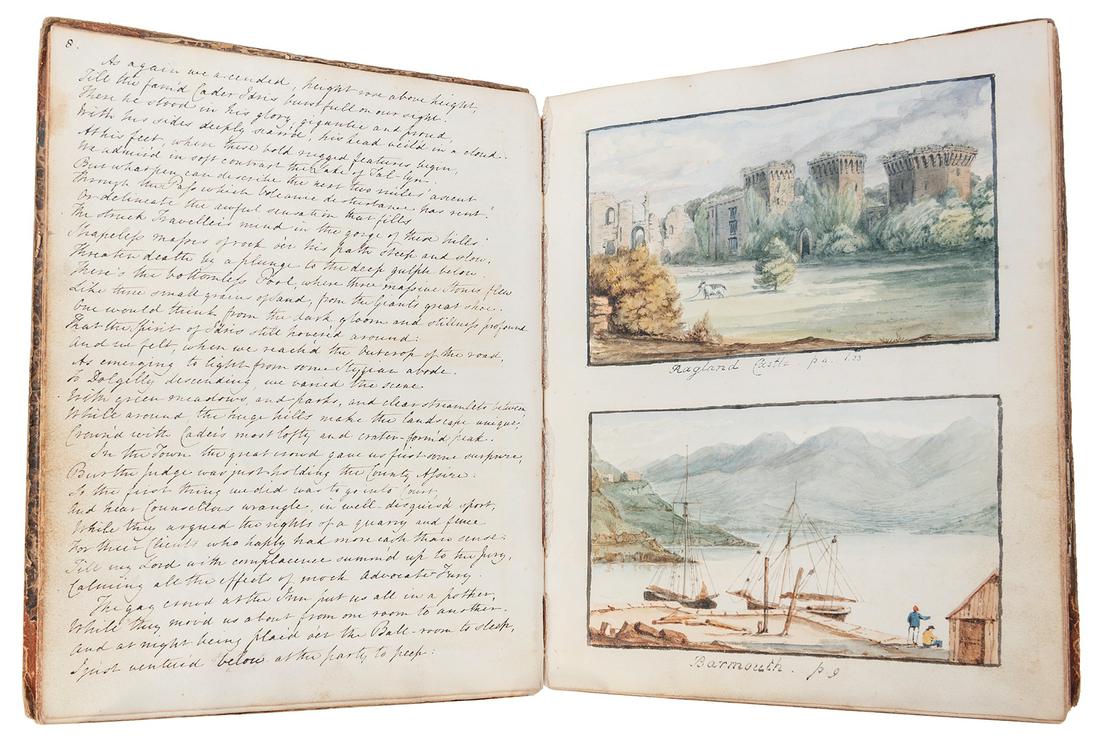 8.
As again we ascended, height rose above height,
Till the fam'd Cader Idris burst full on our sight.
There he stood in his glory, gigantic and proud,
With his sides deeply scarr'd, his head veil'd in a cloud.
At his feet, where these bold rugged features begin,
We admir'd in soft contrast the Lake of Tal-lyn.
But what pen can describe the next two miles' ascent
Through the Pass which Volcanic disturbance has rent.
Or delineate the awful sensation that fills
The struck Traveller's mind in the gorge of these hills.
Shapeless masses of rock o'er his path steep and slow,
Threaten death in a plunge to the deep gulph below.
There's the bottomless Pool, where three massive Stones flew
Like three small grains of sand, from the Giant's great shoe.
One would think from the dark gloom and stillness profound
That the Spirit of Idris still hover'd around.
And we felt, when we reach'd the outcrop of the road,
As emerging to light from some Stygian abode.
To Dolgelly descending, we varied the scene
With green meadows, and parks, and clear streamlets between
While around the huge hills make the landscape unique,
Crown'd with Cader's most lofty and crater-form'd peak.
In the Town the great crowd gave us first some surprise,
But the Judge was just holding the County Assize.
So the first thing we did was to go into Court,
And hear Counsellors wrangle, in well disguis'd sport,
While they argued the rights of a quarry and fence
For their Clients who haply had more cash than sense.
Till my Lord with complacence summ'd up to the Jury,
Calming all the effects of mock Advocate Fury.
The gay crowd at the Inn put us all in a pother,
While they mov'd us about from one room to another.
And at night being plac'd o'er the Ball-room to sleep,
I just ventur'd below at the party to peep:
Ragland Castle p 4. 133
Barmouth. p 9